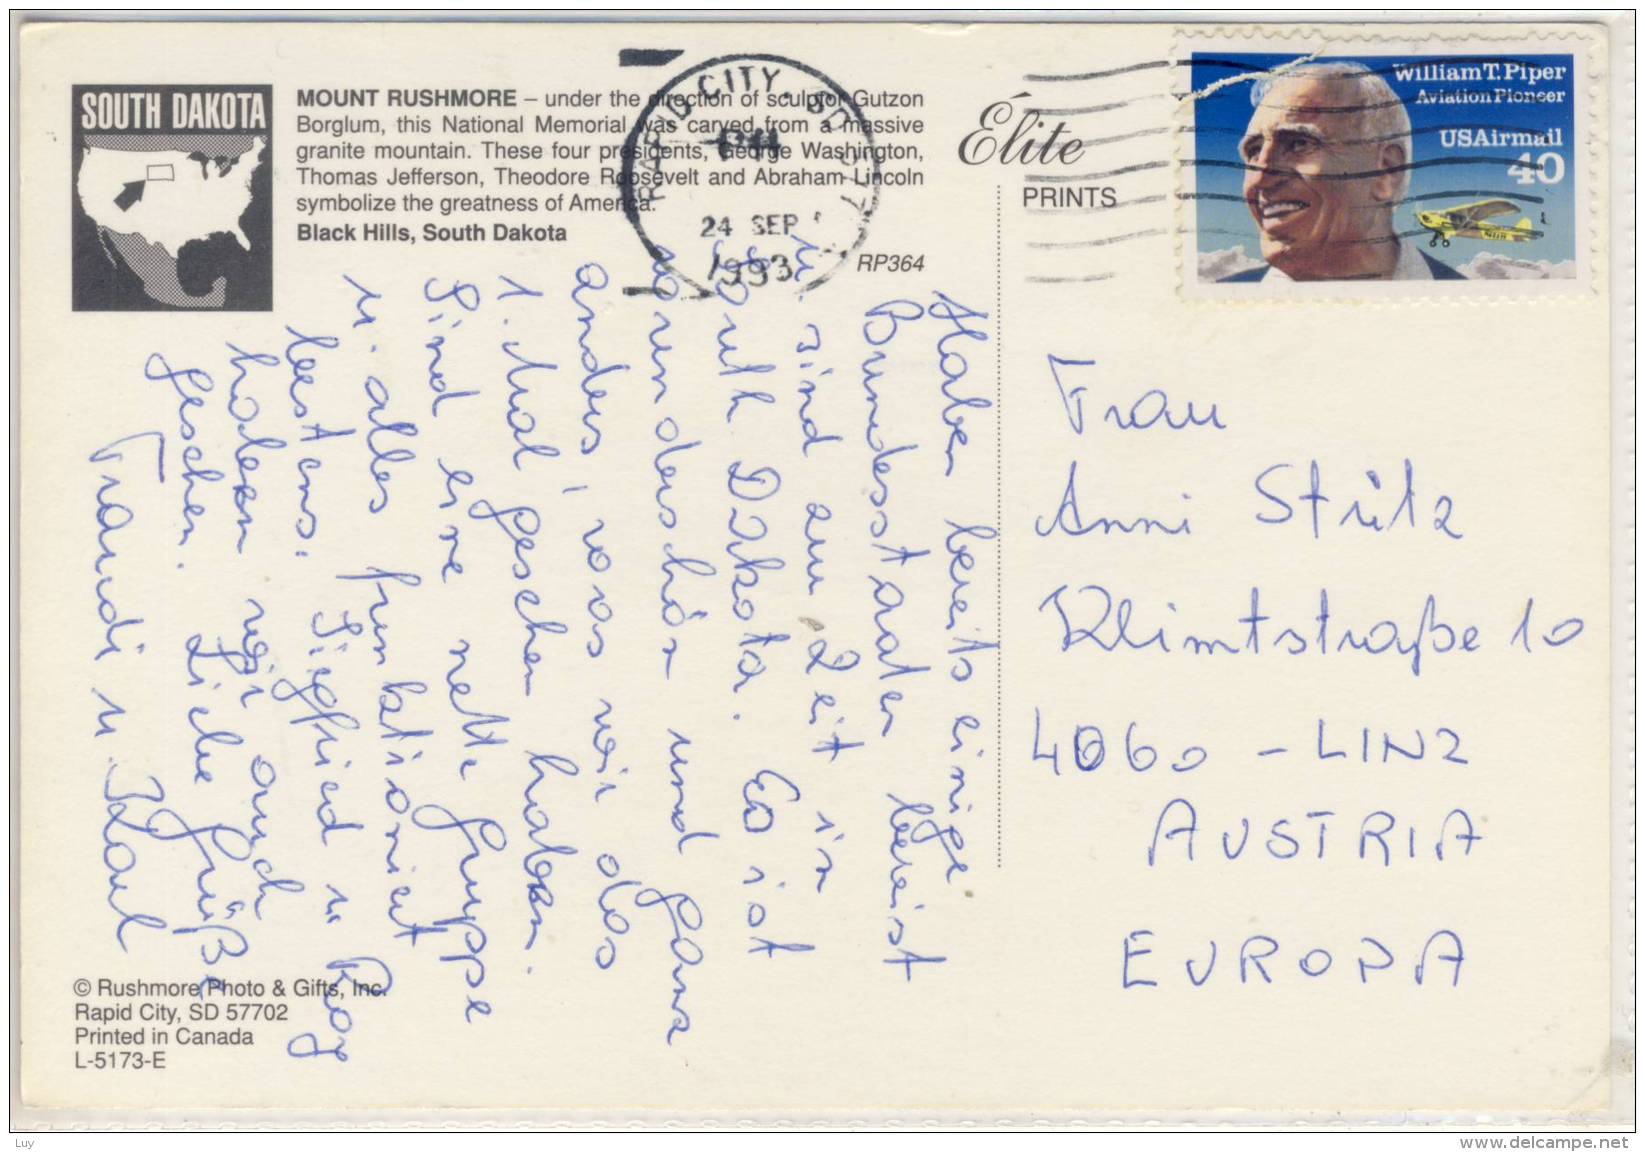 SOUTH DAKOTA
MOUNT RUSHMORE – under the direction of sculptor Gutzon
Borglum, this National Memorial was carved from a massive
granite mountain. These four presidents, George Washington,
Thomas Jefferson, Theodore Roosevelt and Abraham Lincoln
symbolize the greatness of America.
Black Hills, South Dakota
RP364
RAPID CITY, SD 577
24 SEP
1993
Élite
PRINTS
William T. Piper
Aviation Pioneer
USAirmail
40
Haben bereits einige
Bundesstaaten bereist
u. sind zur Zeit in
South Dakota. Es ist
wunderschön und ganz
anders, was wir das
1. Mal gesehen haben.
Sind eine nette Gruppe
u. alles funktioniert
bestens. Siegfried u. Roy
haben wir auch
gesehen. Liebe Grüße
Traudi u. Karl
Frau
Anni Stütz
Klimtstraße 10
4060 – LINZ
AUSTRIA
EUROPA
© Rushmore Photo & Gifts, Inc.
Rapid City, SD 57702
Printed in Canada
L-5173-E
Luy
www.delcampe.net